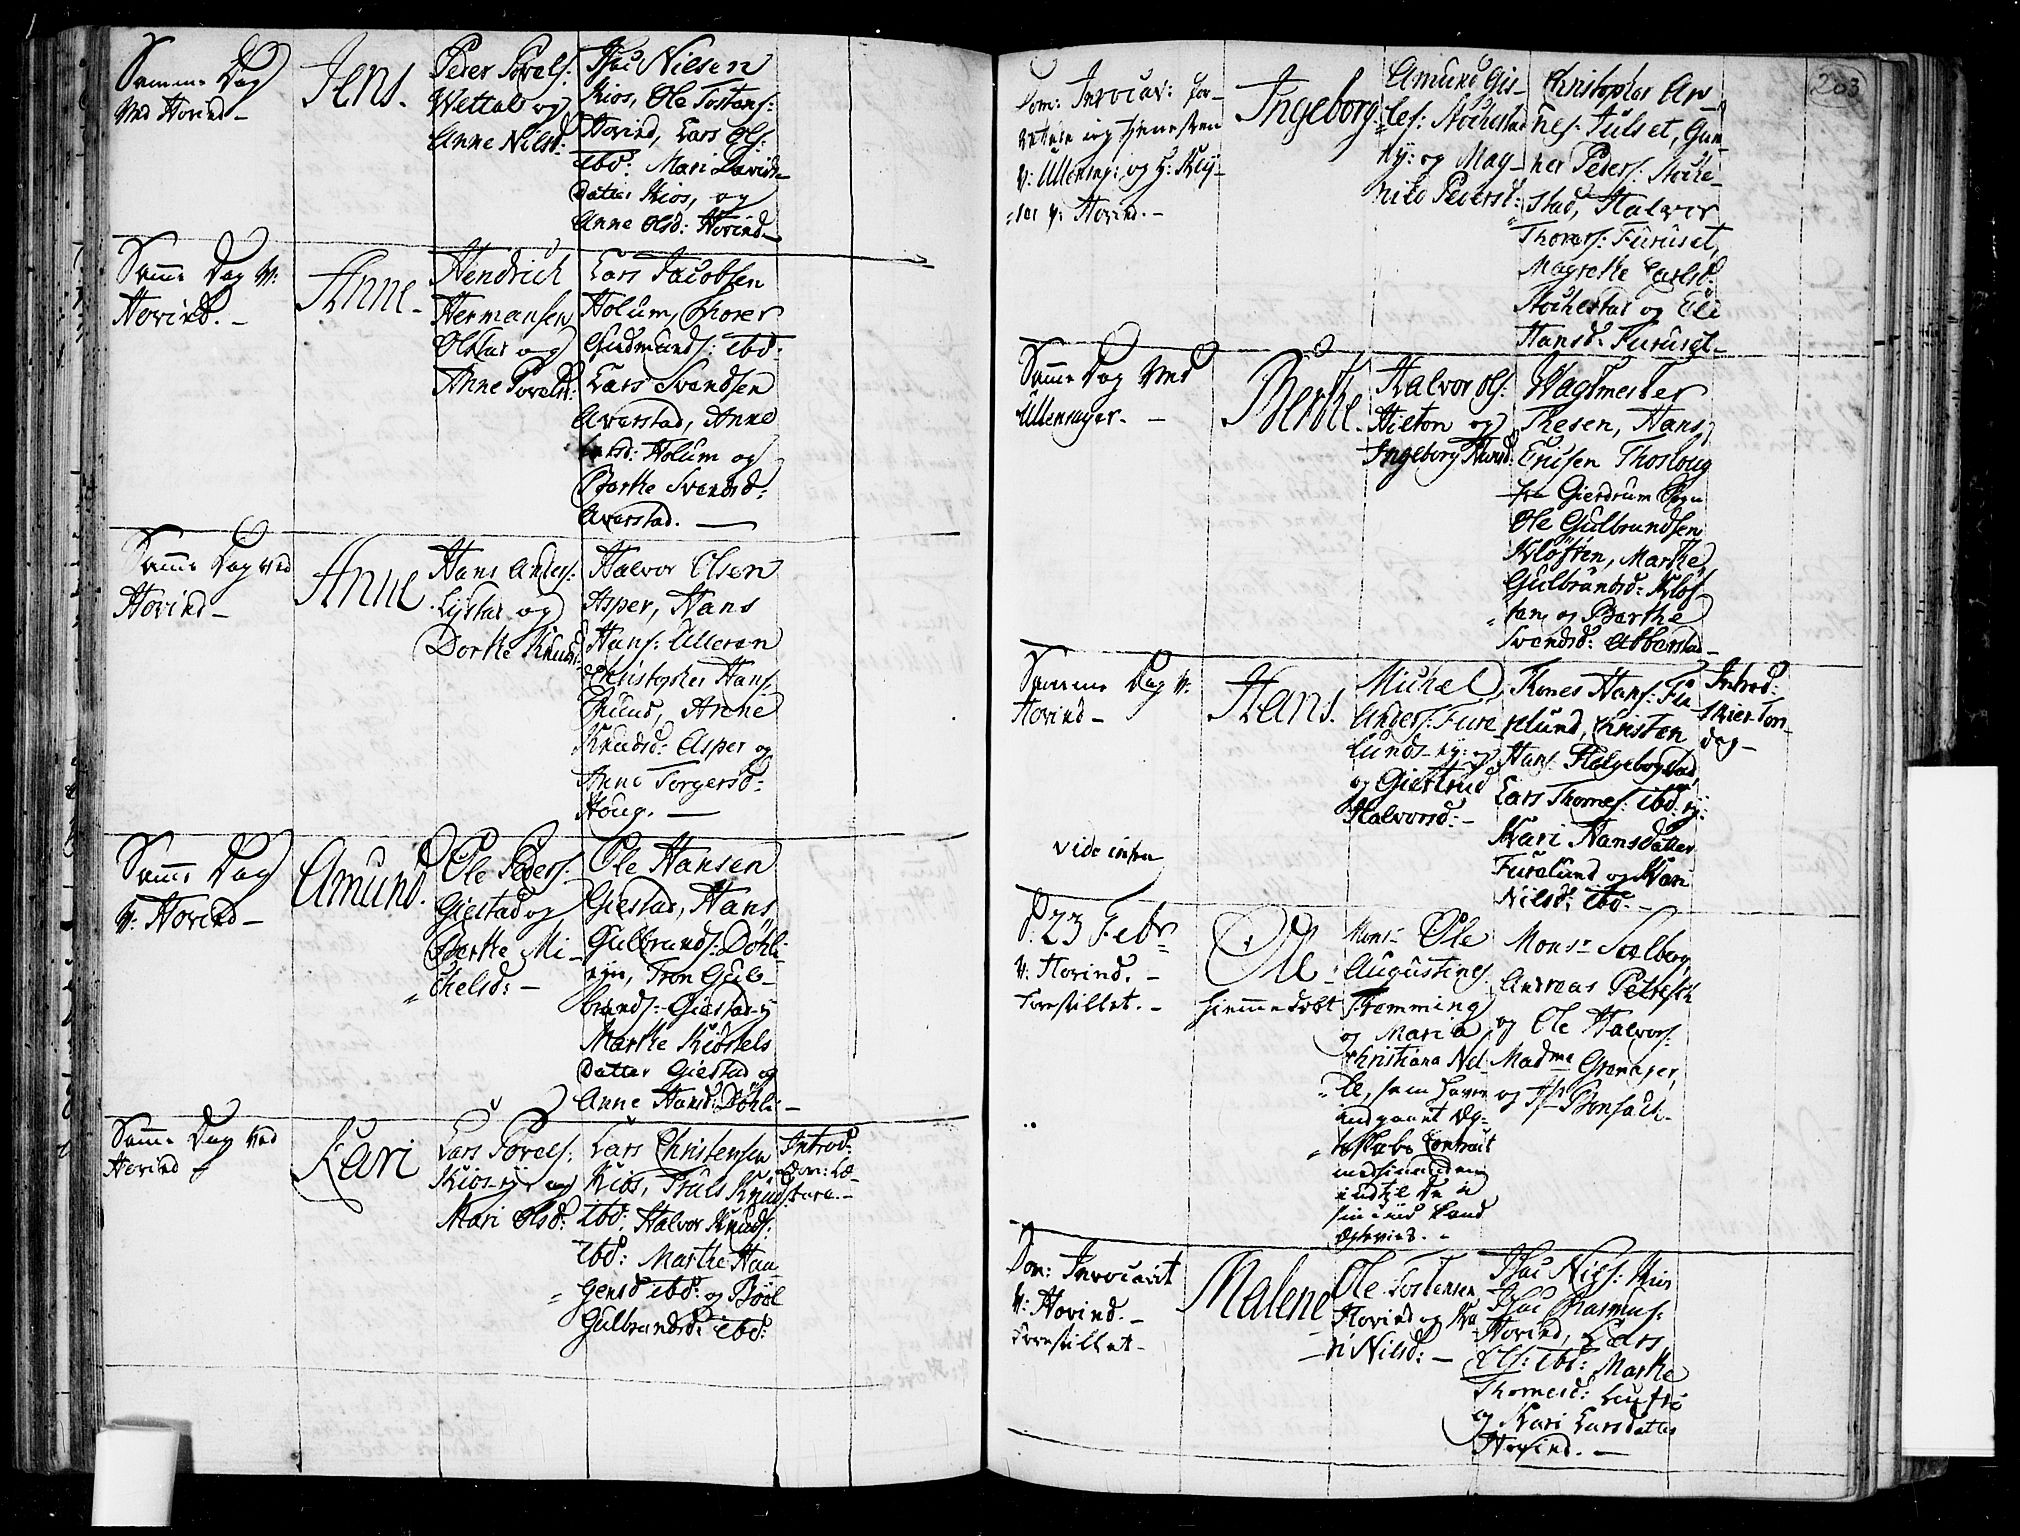 Samme Dag
ved Hovind –
Jens.
Peder Povels:
Wettal og
Anne Nilsd:
Isac Nielsen
Kios, Ole Tostens:
Hovind, Lars Ols:
ibd: Mari Davids
Datter Kios, og
Anne Olsd: Hovind –
Samme Dag v:
Hovind. –
Anne –
Hendrich
Hermansen
Olstad og
Anne Povelsd:
Lars Jacobsen
Holum, Thorer
Gudmunds: ibd:
Lars Svendsen
Averstad, Anne
Holum og
Berthe Svendsd:
Averstad. –
Samme Dag ved
Hovind –
Anne
Hans Anders:
Lystad og
Dorthe Knuds
Halvor Olsen
Asper, Hans
Hans: Ulleren
Christopher Hans:
Anne
Knudsd: Asper og
Anne Torgersd:
Houg. –
Samme Dag
v: Hovind –
Amund.
Ole Peders:
Giestad og
Berthe Mi-
chelsd: –
Ole Hansen
Giestad, Hans
Gulbrands: Döhli
eijn, Tron Gul-
brands: Giestad-ej
Marthe Kiöstels
Datter Giestad og
Anne Hansd: Döhli –
Samme Dag ved
Hovind
Kari
Lars Povels:
Kios-ej: og
Mari Olsd:
Lars Christensen
Kios, Truls Knuds
ibd: Halvor Knuds:
ibd: Marthe Haa
gensd ibd: og Böel
Gulbrandsd: ibd:
Introd:
Dom: Læ-
tare. –
203
Dom: Invocav: for-
rettede ieg Tienesten
v: Ullensag: og H: Kly-
ver v: Hovind. –
Ingeborg.
Amund Gis-
les: Stochestad
ey: og Mag-
nild Pedersd:
Christopher Ar-
nes: Julset, Gun-
ner Peders: Stoche-
stad, Halvor
Thorers: Furuset,
Magrethe Carlsd:
Stochestad og Eli
Hansd: Furuset –
Samme Dag ved
Ullensager. –
Berthe.
Halvor Ols:
Hilton og
Ingeborg Hansd:
Wagtmester
Thesen, Hans
Ericsen Thosloug
fra Gierdrum Sogn
Ole Gulbrandsen
Klöften, Marthe
Gulbrandsd: Klöf-
ten, og Berthe
Svendsd: Abberstad –
Samme Dag v:
Hovind –
Hans.
Michel
Anders: Fure
lunds-ej: og
og Giertrud
Halvorsd: –
Thones Hans: Fu
relund, Christen
Hans: Helgebogstad
Lars Thomes: ibd: ej:
Kari Hansdatter
Furelund og Kari
Nilsd: ibd: –
Introd:
Skier Tors
dag –
vide infra
d: 23 Febr
v: Hovind. –
Forestillet. –
Ole.
hiemmedöbt
Mons: Ole
Augustines:
Flemming
og Maria
Christiana Nel-
le, som haver
indgaaet Æg-
teskabs Contract
med hinanden
indtil de i
sin tiid kand
Ægtevies. –
Monsr Solberg
Andreas Petersen
og Ole Halvors:
Madme Grønager,
og Jfr Bonsach –
Dom: Invocavit
v: Hovind. –
Forestillet –
Malene
Ole Tostensen
Hovind og Ka
ri Nilsd: –
Isac Nils: Kios
Isac Rasmus:
Hovind, Lars
Ols: ibd: Marthe
Thomesd:
og Kari Larsdatter
Hovind. –